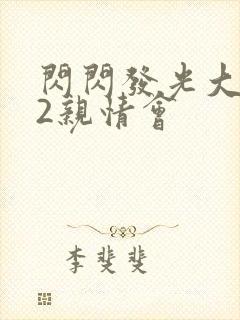 閃閃發光大
2親情會
李斐斐